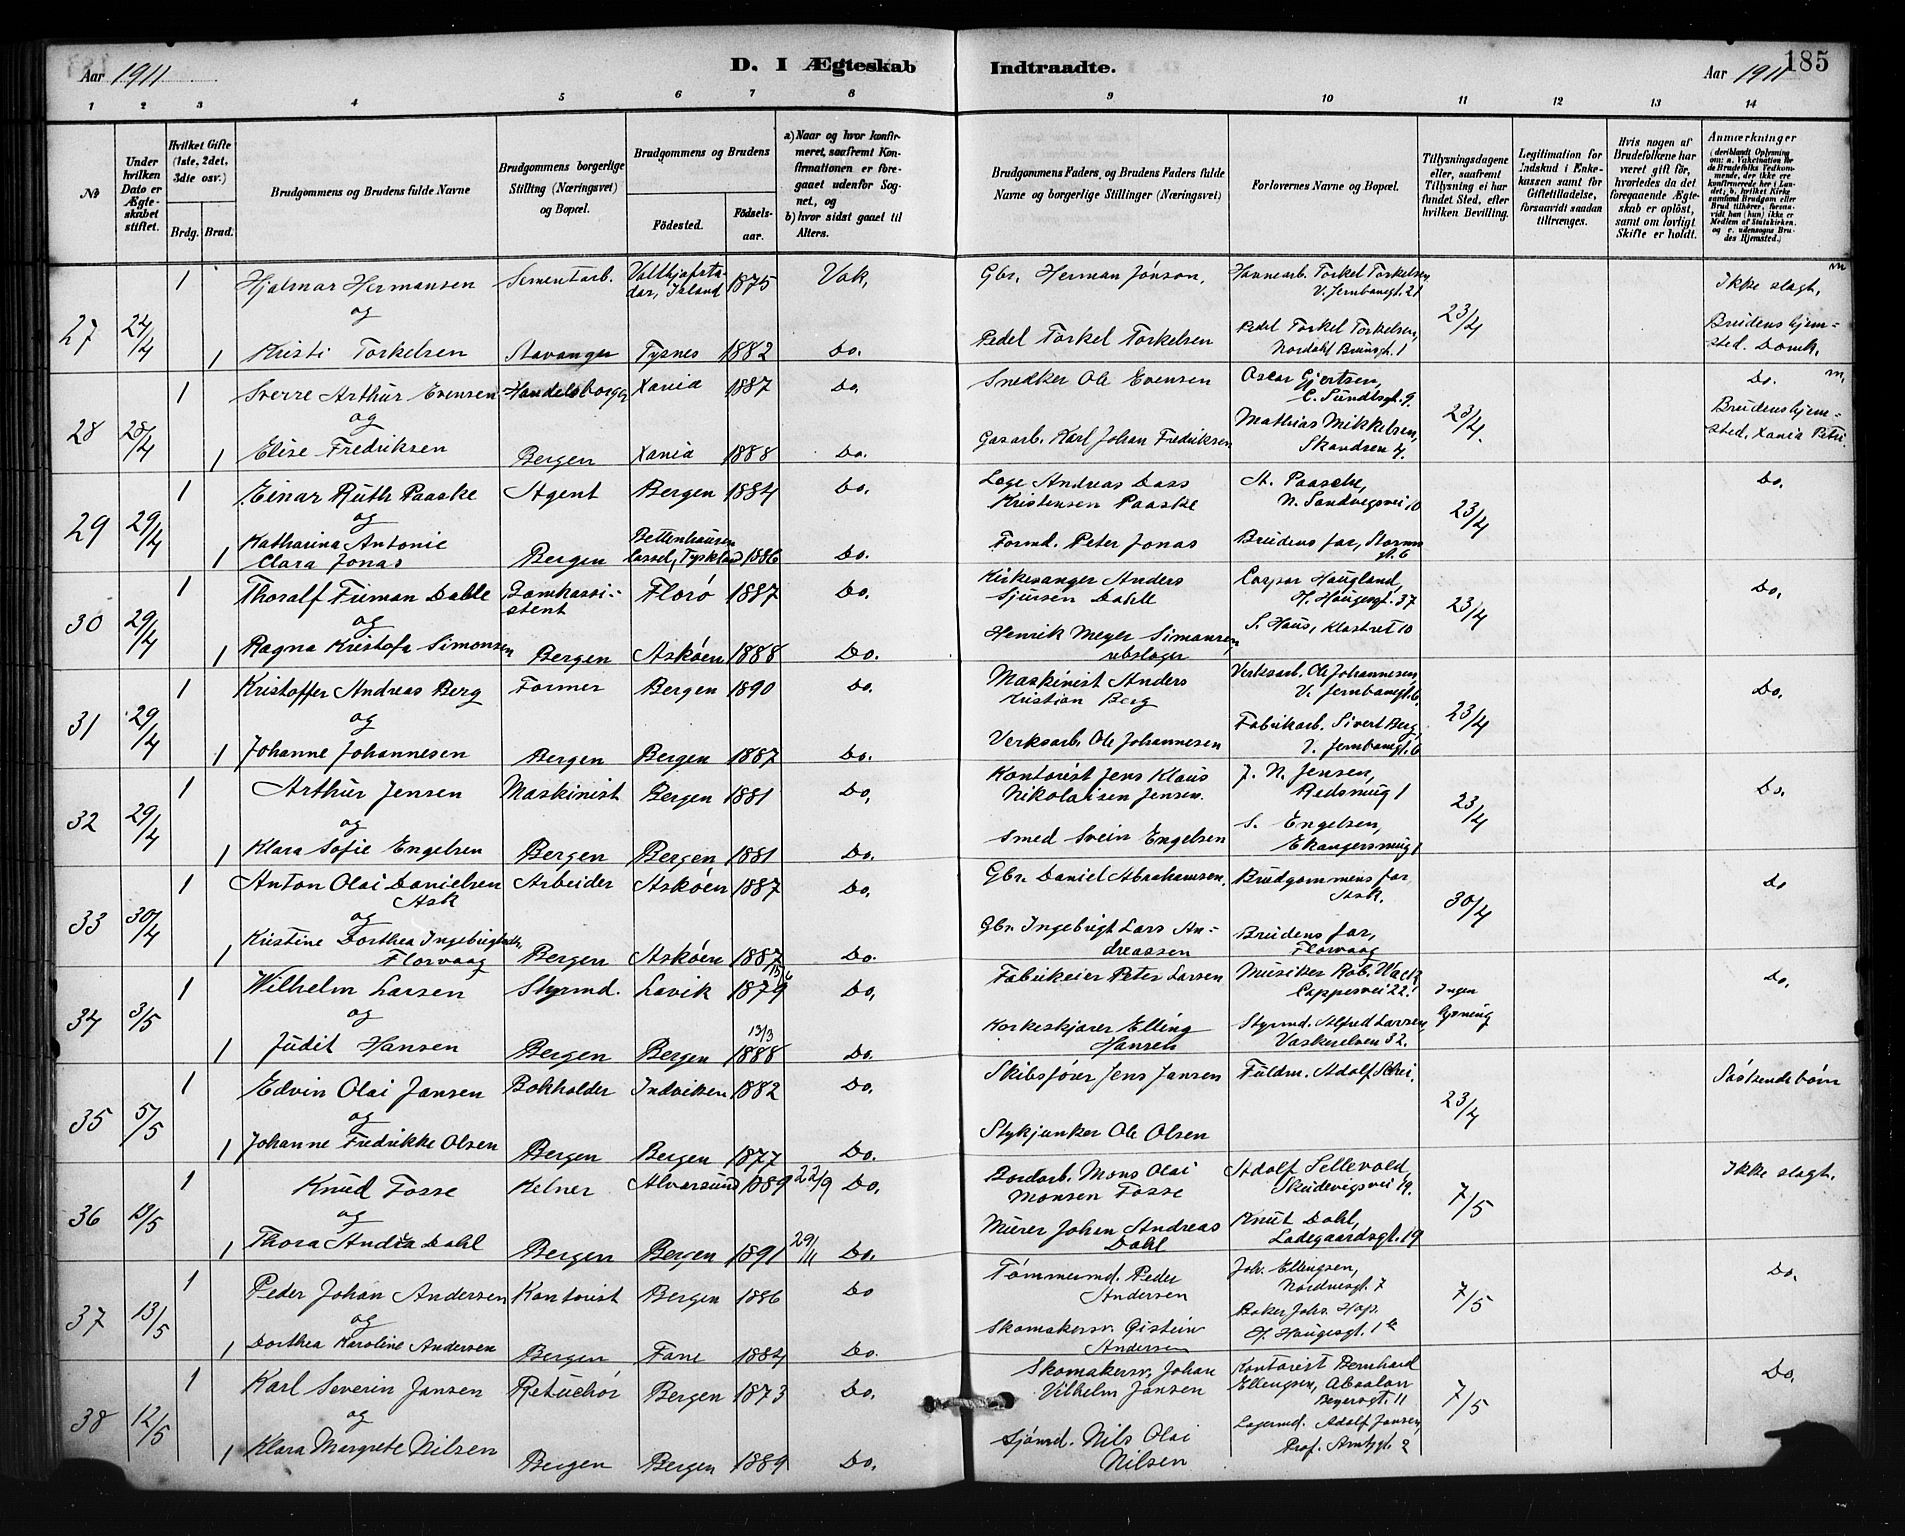 Aar 1911
D. I Ægteskab Indtraadte.
Aar 1911
185
1 2 3 4 5 6 7 8 9 10 11 12 13 14
No
Under hvilken Dato er Ægteskabet stiftet.
Hvilket Gifte (1ste, 2det, 3die osv.)
Brdg. Brud.
Brudgommens og Brudens fulde Navne
Brudgommens borgerlige Stilling (Næringsvei) og Bopæl.
Brudgommens og Brudens
Fødested.
Fødselsaar.
a) Naar og hvor konfirmeret, saafremt Konfirmationen er foregaaet udenfor Sognet, og
b) hvor sidst gaaet til Alters.
Brudgommens Faders, og Brudens Faders fulde Navne og borgerlige Stillinger (Næringsvei)
Forlovernes Navne og Bopæl.
Tillysningsdagene eller, saafremt Tillysning ei har fundet Sted, efter hvilken Bevilling.
Legitimation for Indskud i Enkekassen samt for Giftetilladelse, forsaavidt saadan tiltrænges.
Hvis nogen af Brudefolkene har været gift før, hvorledes da det foregaaende Ægteskab er opløst, samt om lovligt Skifte er holdt.
Anmærkninger
27 24/4 1 Hjalmar Hermansen Sementarb. 1875 Vak. Gbr. Herman Jónson, Torkel Torkelsen, V. Jernbanegt. 21 23/4 Ikke slegt, m
og
1 Kristi Torkelsen Stavanger Tysnes 1882 Do. Pedel Torkel Torkelsen Pedel Torkel Torkelsen, Nordahl Brunsgt. 1 Brudens hjemsted. Domk.
28 28/4 1 Sverre Arthur Evensen Xania 1887 Do. Snedker Ole Evensen Oscar Gjertsen, E. Sundtsgt. 9. 23/4. Do. m.
og
1 Elise Fredriksen Bergen Xania 1888 Do. Gasarb. Karl Johan Fredriksen Mathias Mikkelsen, Skandsen 4. Brudens hjemsted. Xania Petri.
29 29/4 1 Einar Ruth Paaske Agent Bergen 1884 Do. Andreas Dass Kristensen Paaske A. Paasche, N. Sandvigsvei 10 23/4 Do.
og
1 Katharina Antonie Clara Jonas Bergen Bettenhausen Cassel, Tyskland 1886 Do. Formd. Peter Jonas Brudens far, gt. 6
30 29/4 1 Thoralf Dahle Florø 1887 Do. Kirkesanger Anders Sjursen Dahle Caspar Haugland, H. Haugesgt. 37 23/4 Do.
og
1 Ragna Kristofa Simonsen Bergen Askøen 1888 Do. Henrik Meyer Simonsen, rebslager S. Haus, Klostret 10
31 29/4 1 Kristoffer Andreas Berg Former Bergen 1890 Do. Maskinist Anders Kristian Berg Verksarb. Ole Johannesen, V. Jernbanegt. 6. 23/4 Do.
og
1 Johanne Johannesen Bergen Bergen 1887 Do. Verksarb. Ole Johannesen Fabrikarb. Sivert Berg, V. Jernbanegt. 6
32 29/4 1 Arthur Jensen Maskinist Bergen 1881 Do. Kontorist Jens Klaus Nikolaisen Jensen. J. N. Jensen, 23/4 Do.
og
1 Klara Sofie Engelsen Bergen Bergen 1881 Do. Smed Svein Engelsen S. Engelsen, Ekangersmug 1
33 30/4 1 Anton Olai Danielsen Ask Arbeider Askøen 1887 Do. Gbr. Daniel Abrahamsen. Brudgommens far, Ask. 30/4 Do
og
1 Kristine Dorthea Florvaag Bergen Askøen 1887 Do. Gbr. Ingebrigt Lars Andreassen Brudens far, Florvaag
34 3/5 1 Wilhelm Larsen Styrmd. Lavik 1879 Do. Fabrikeier Peter Larsen Musiker Rob. Cappesvei 22. Ingen lysning Do.
og
1 Judit Hansen Bergen Bergen 13/3 1888 Do. Korkeskjærer Elling Hansen Styrmd. Alfred Larsen, Vaskerelven 32.
35 5/5 1 Edvin Olai Jansen Bokholder Indviken 1882 Do. Skibsfører Jens Jansen Fuldm. Adolf 23/4 Søstsendebørn
og
1 Johanne Fredrikke Olsen Bergen Bergen 1877 Do. Stykjunker Ole Olsen
36 10/5 1 Knud Fosse Kelner Alversund 1889 22/9 Do. Bordarb. Mons Olai Monsen Fosse Adolf Sellevold, Skudevigsvei 19. 7/5 Ikke slagt.
og
1 Thora Andrea Dahl Bergen Bergen 1891 29/11 Do. Murer Johan Andreas Dahl Knut Dahl, Ladegaardsgt. 19
37 13/5 1 Peder Johan Andersen Kontorist Bergen 1886 Do Tømmermd. Peder Andersen Joh. Ellingsen, Nordnesgt. 7 7/5 Do.
og
1 Dorthea Karoline Andersen Bergen Fane 1884 Do. Skomakersv. Øistein Andersen Baker Johs. Hop, H. Haugesgt. 1
38 12/5 1 Karl Severin Jansen Retuchør Bergen 1873 Do. Skomakersv. Johan Vilhelm Jansen Kontorist Bernhard Ellingsen, Absalon Beyersgt. 11 7/5 Do.
og
1 Klara Margrete Nilsen Bergen Bergen 1889 Do. Sjømd. Nils Olai Nilsen Lagermd. Adolf Jansen, Prof. 2